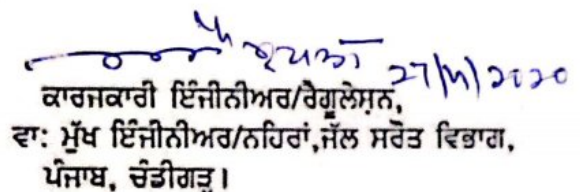 27/11/2020
ਕਾਰਜਕਾਰੀ ਇੰਜੀਨੀਅਰ/ਰੈਗੂਲੇਸ਼ਨ,
ਵਾ: ਮੁੱਖ ਇੰਜੀਨੀਅਰ/ਨਹਿਰਾਂ,ਜੱਲ ਸਰੋਤ ਵਿਭਾਗ,
ਪੰਜਾਬ, ਚੰਡੀਗੜ੍ਹ।